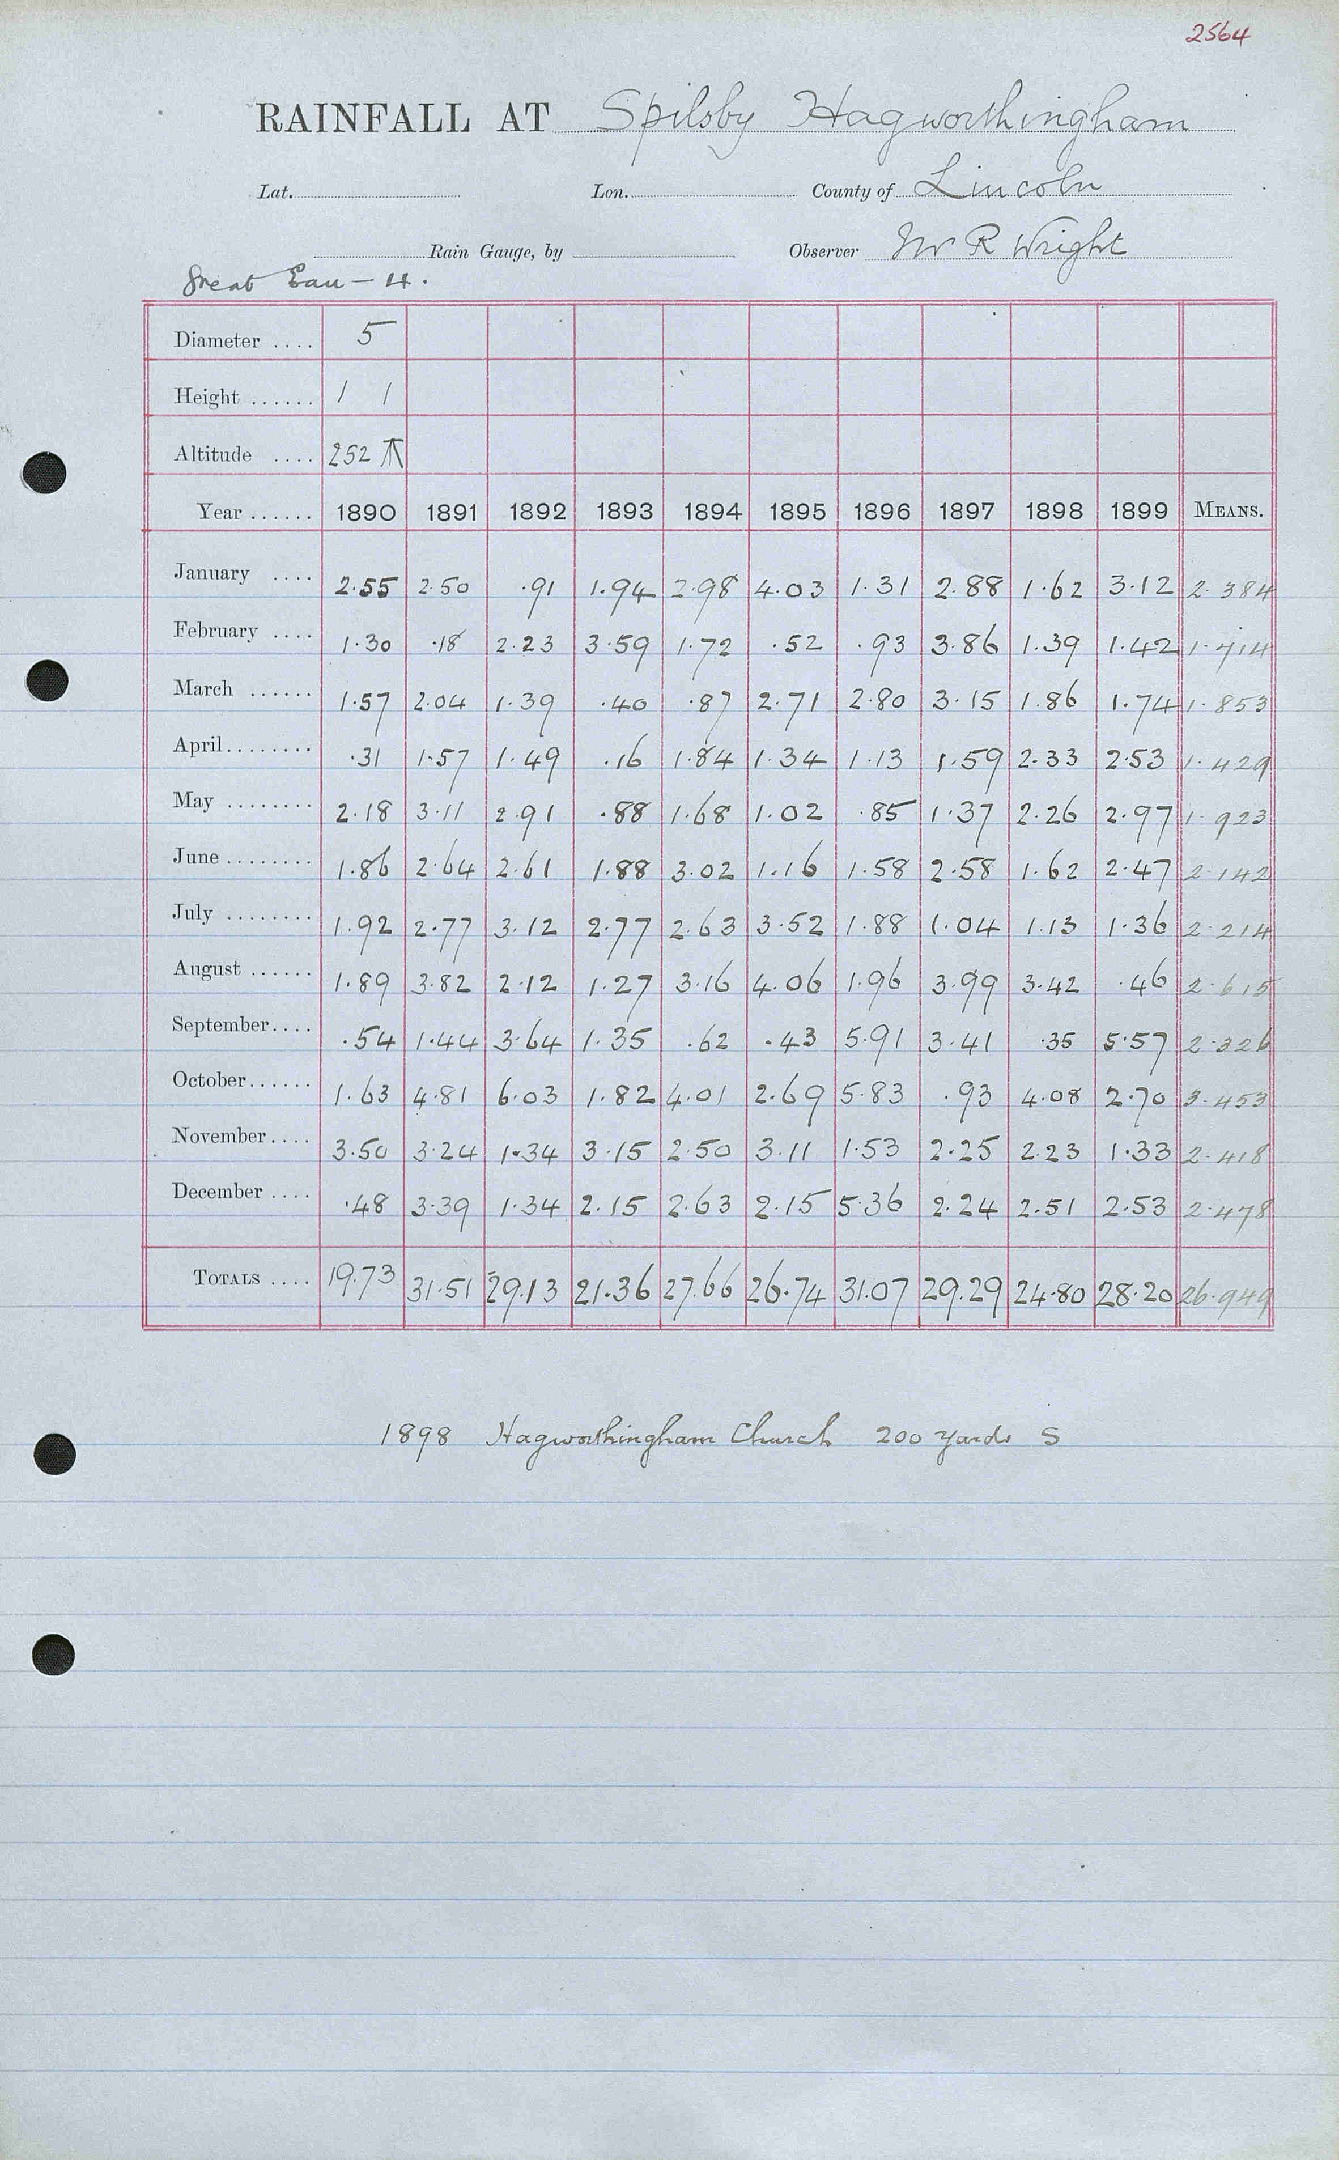 2564
RAINFALL AT Spilsby Hagworthingham
Lat. Lon. County of Lincoln
Rain Gauge, by Observer Mr R Wright
Great Eau – 4.
Diameter .... 5
Height ...... 1 1
Altitude .... 252
Year ...... 1890 1891 1892 1893 1894 1895 1896 1897 1898 1899 MEANS.
January .... 2.55 2.50 .91 1.94 2.98 4.03 1.31 2.88 1.62 3.12 2.384
February .... 1.30 .18 2.23 3.59 1.72 .52 .93 3.86 1.39 1.42 1.714
March ...... 1.57 2.04 1.39 .40 .87 2.71 2.80 3.15 1.86 1.74 1.853
April ........ .31 1.57 1.49 .16 1.84 1.34 1.13 1.59 2.33 2.53 1.429
May ........ 2.18 3.11 2.91 .88 1.68 1.02 .85 1.37 2.26 2.97 1.923
June ........ 1.86 2.64 2.61 1.88 3.02 1.16 1.58 2.58 1.62 2.47 2.142
July ........ 1.92 2.77 3.12 2.77 2.63 3.52 1.88 1.04 1.13 1.36 2.214
August ...... 1.89 3.82 2.12 1.27 3.16 4.06 1.96 3.99 3.42 .46 2.615
September.... .54 1.44 3.64 1.35 .62 .43 5.91 3.41 .35 5.57 2.326
October...... 1.63 4.81 6.03 1.82 4.01 2.69 5.83 .93 4.08 2.70 3.453
November.... 3.50 3.24 1.34 3.15 2.50 3.11 1.53 2.25 2.23 1.33 2.418
December .... .48 3.39 1.34 2.15 2.63 2.15 5.36 2.24 2.51 2.53 2.478
TOTALS .... 19.73 31.51 29.13 21.36 27.66 26.74 31.07 29.29 24.80 28.20 26.949
1898 Hagworthingham Church 200 yards S